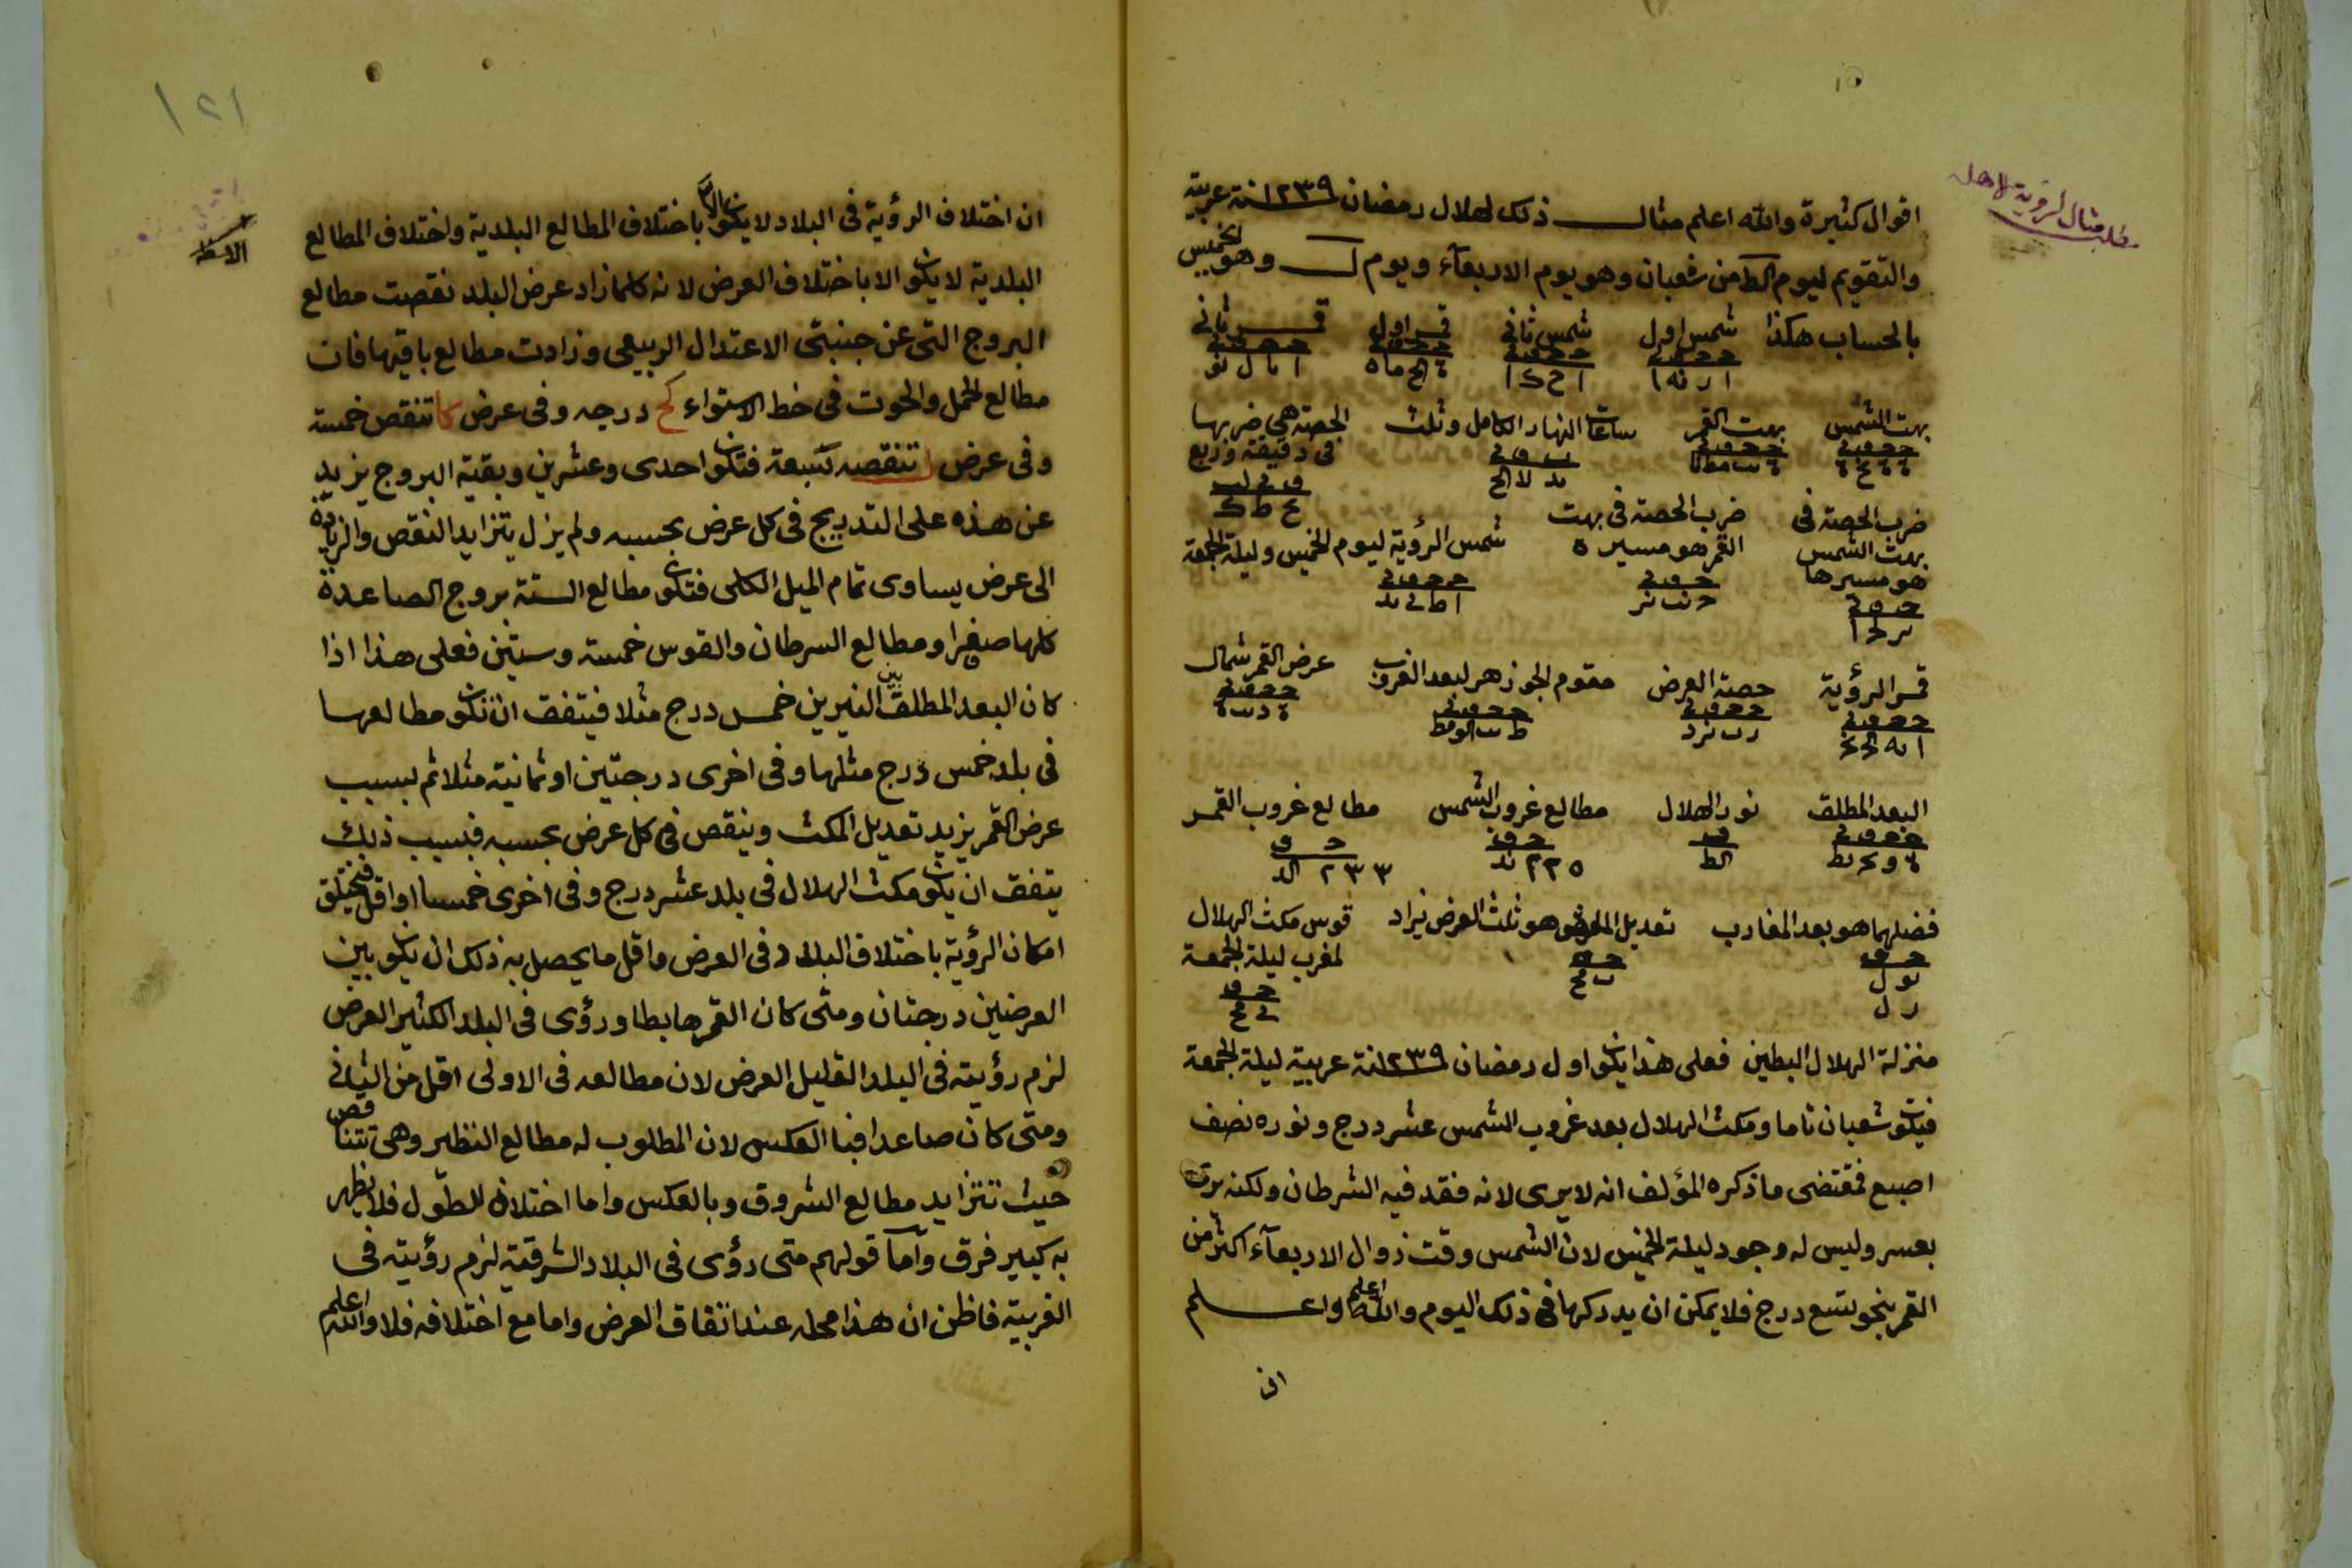 مطلب مثال لرؤية الاهلة
اقوال كثيرة والله اعلم مثال ذلك لهلال رمضان ١٢٣٩سنة عربية
والتقويم ليوم الط من شعبان وهو يوم الاربعآء ويوم ل وهو الخميس
بالحساب هكذا شمس اول شمس ثانى قمر اول قمر ثانى
بهت الشمس بهت القمر ساعات النهار الكامل وثلث الحصة هي ضربها
فى دقيقة وربع
ضرب الحصة فى ضرب الحصة فى بهت شمس الرؤية ليوم الخميس وليلة الجمعة
بهت الشمس القمر هو مسيره
هو مسيرها
قمر الرؤية حصة العرض مقوم الجوزهر لبعد الغروب عرض القمر شمال
البعد المطلق نور الهلال مطالع غروب الشمس مطالع غروب القمر
٢٢٥ ٢٣٣
فضلهما هو بعد المغارب تعديل المكث هو ثلث العرض يزاد قوس مكث الهلال
لمغرب ليلة الجمعة
منزلة الهلال البطين فعلى هذا يكون اول رمضان ١٢٣٩سنة عربية ليلة الجمعة
فيكون شعبان تاما ومكث الهلال بعد غروب الشمس عشر درج ونوره نصف
اصبع فمقتضى ما ذكره المؤلف انه لا يرى لانه فقد فيه الشرطان ولكنه يرى
بعسر وليس له وجود ليلة الخميس لان الشمس وقت زوال الاربعآء اكثر من
القمر بنحو تسع درج فلا يمكن ان يدركها فى ذلك اليوم والله اعلم واعلم
ان
١٢١
ان اختلاف الرؤية فى البلاد لا يكون الا باختلاف المطالع البلدية واختلاف المطالع
البلدية لا يكون الا باختلاف العرض لانه كلما زاد عرض البلد نقصت مطالع
البروج التى عن جنبتى الاعتدال الربيعى وزادت مطالع باقيها فان
مطالع الحمل والحوت فى خط الاستواء كح درجه وفى عرض كا تنقص خمسة
وفى عرض ل تنقصه سبعة فتكون احدى وعشرين وبقية البروج يزيد
عن هذه على التدريج فى كل عرض بحسبه ولم يزل يتزايد النقص والزيادة
الى عرض يساوى تمام الميل الكلى فتكون مطالع الستة بروج الصاعدة
كلها صفرا ومطالع السرطان والقوس خمسة وستين فعلى هذا اذا
كان البعد المطلق بين النيرين خمس درج مثلا فيتفق ان تكون مطالعها
فى بلد خمس درج مثلها وفى اخرى درجتين او ثمانية مثلا ثم بسبب
عرض القمر يزيد تعديل المكث وينقص فى كل عرض بحسبه فبسبب ذلك
يتفق ان يكون مكث الهلال فى بلد عشر درج وفى اخرى خمسا او اقل فيختلف
امكان الرؤية باختلاف البلاد فى العرض واقل ما يحصل به ذلك ان يكون بين
العرضين درجتان ومتى كان القمر هابطا ورؤى فى البلد الكثير العرض
لزم رؤيته فى البلد القليل العرض لان مطالعه فى الاولى اقل من الثانى
ومتى كان صاعدا فبالعكس لان المطلوب له مطالع النظير وهى تتناقص
حيث تتزايد مطالع الشروق وبالعكس واما اختلاف الطول فلا يظهر
به كبير فرق واما قولهم متى رؤى فى البلاد الشرقية لزم رؤيته فى
الغربية فاظن ان هذا محله عند اتفاق العرض واما مع اختلافه فلا والله اعلم